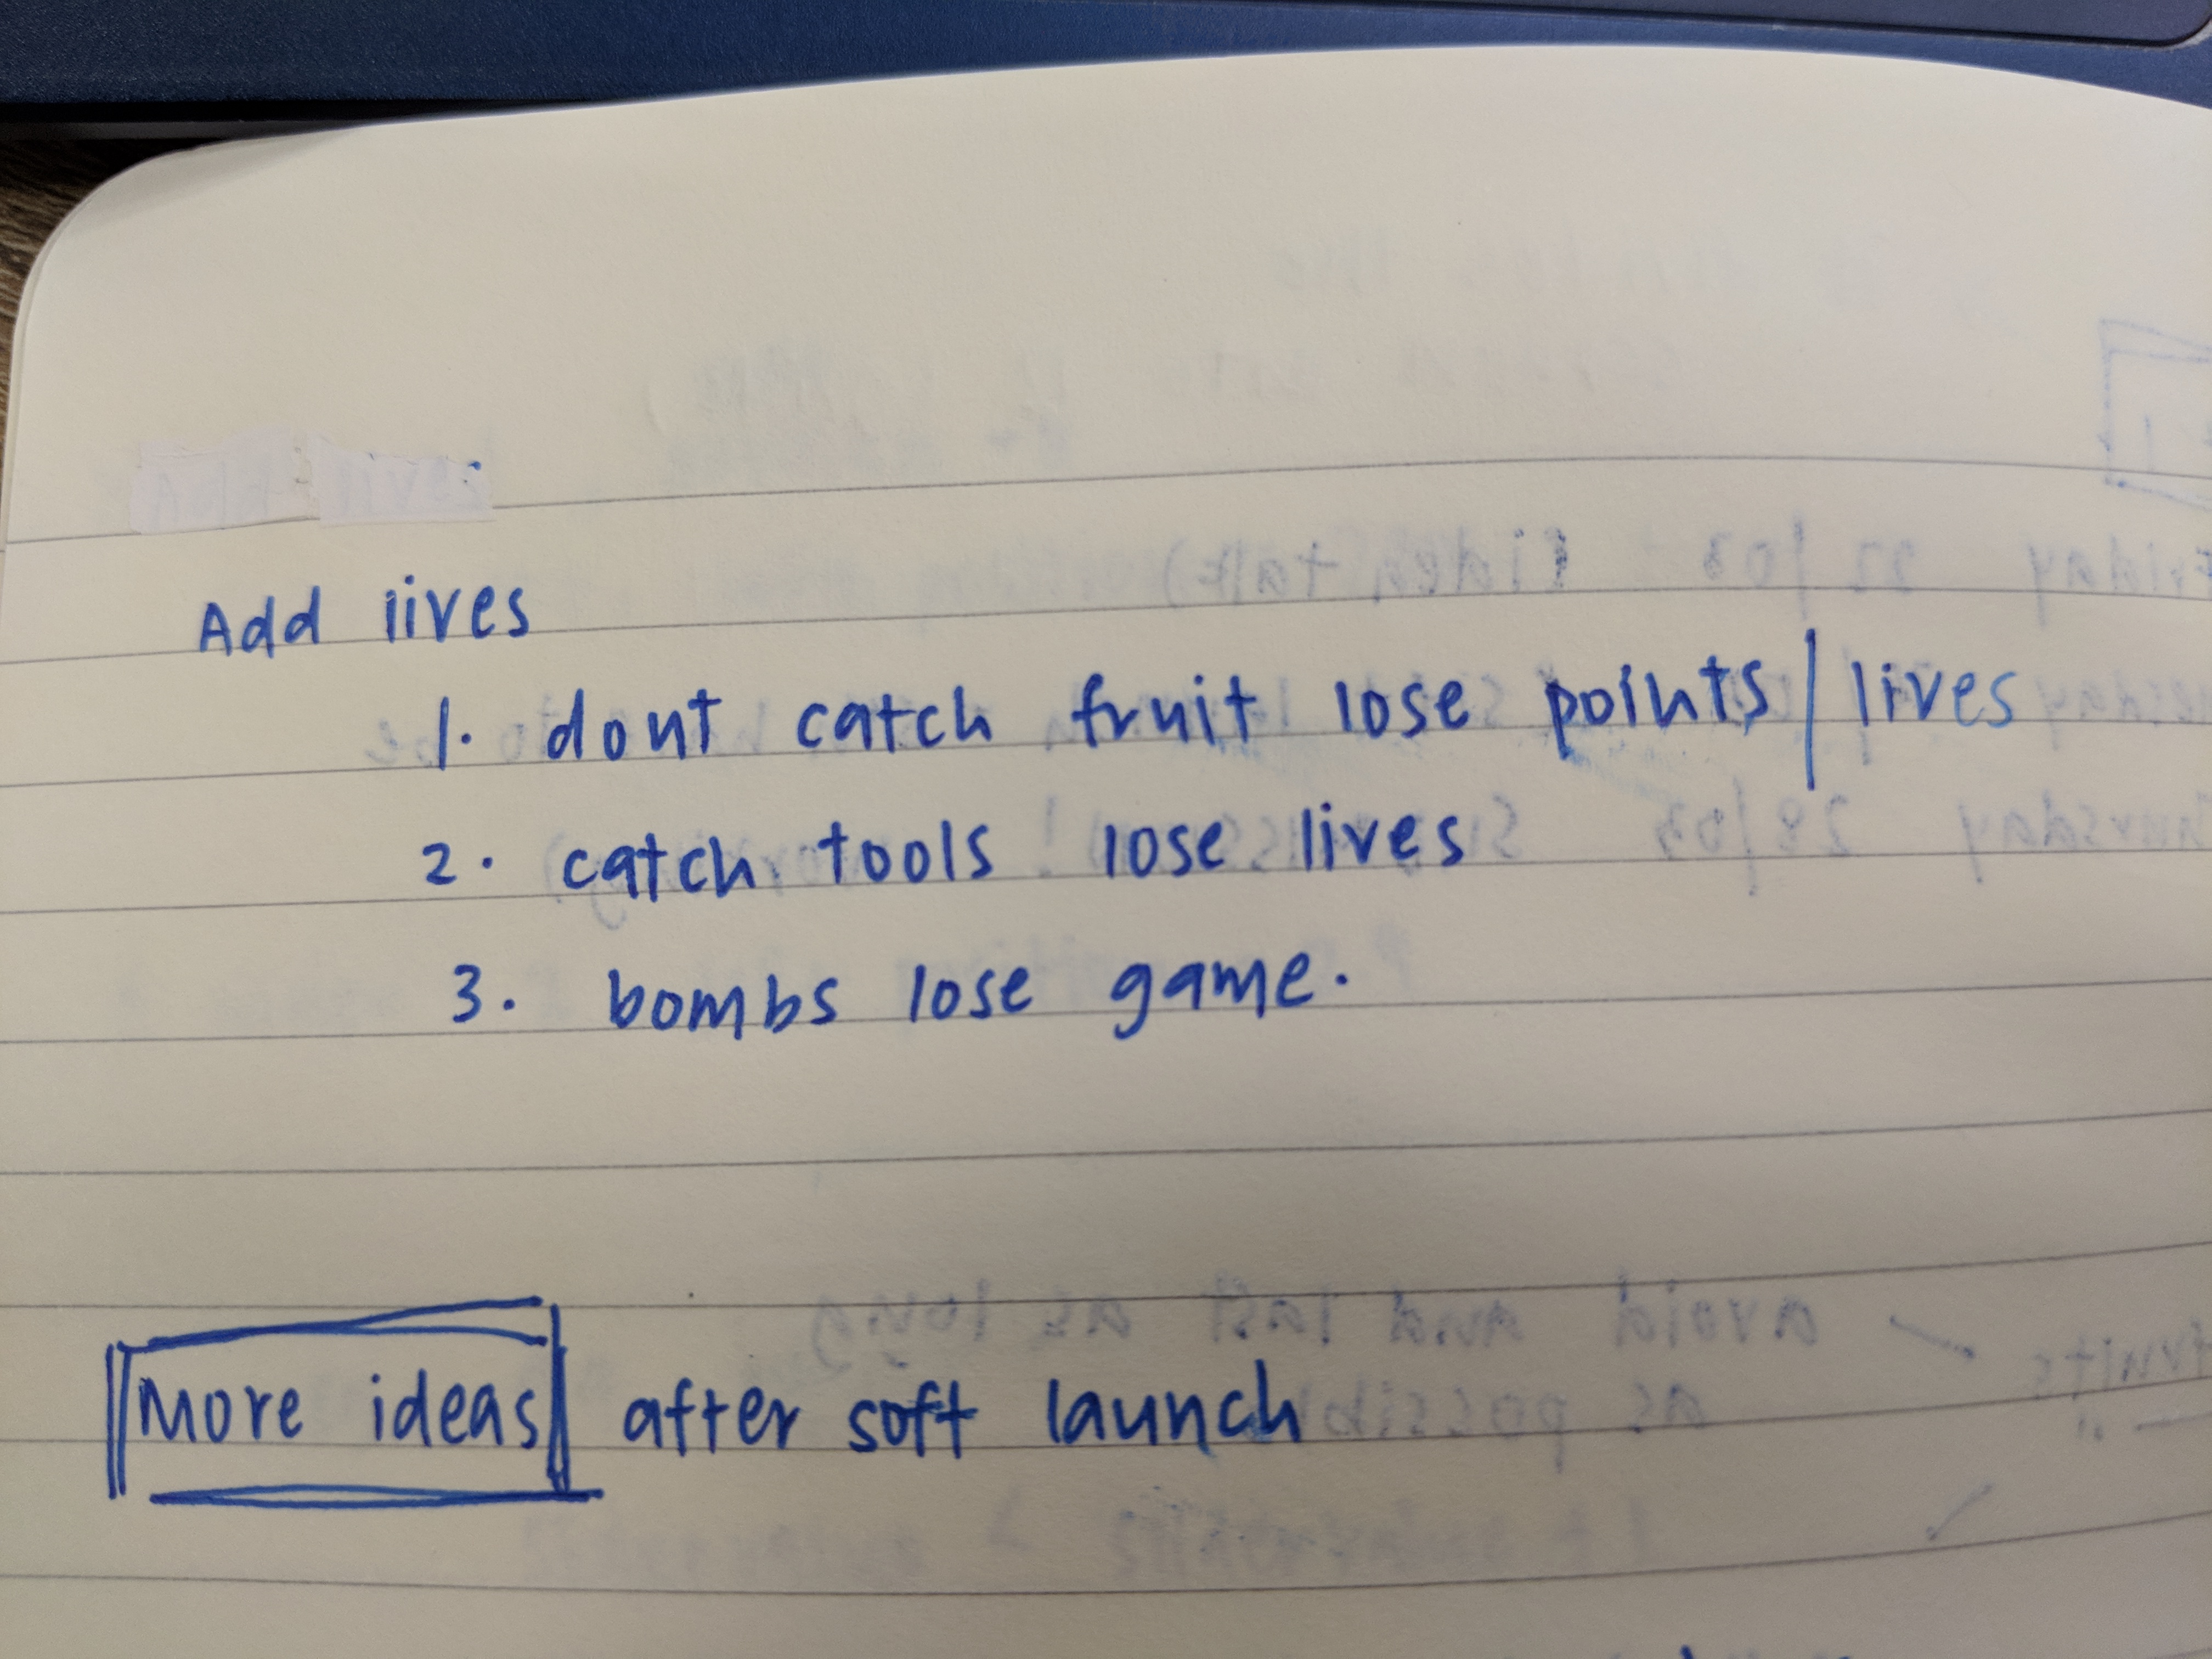 Add lives
1. dont catch fruit lose points/lives
2. catch tools lose lives
3. bombs lose game.
More ideas after soft launch